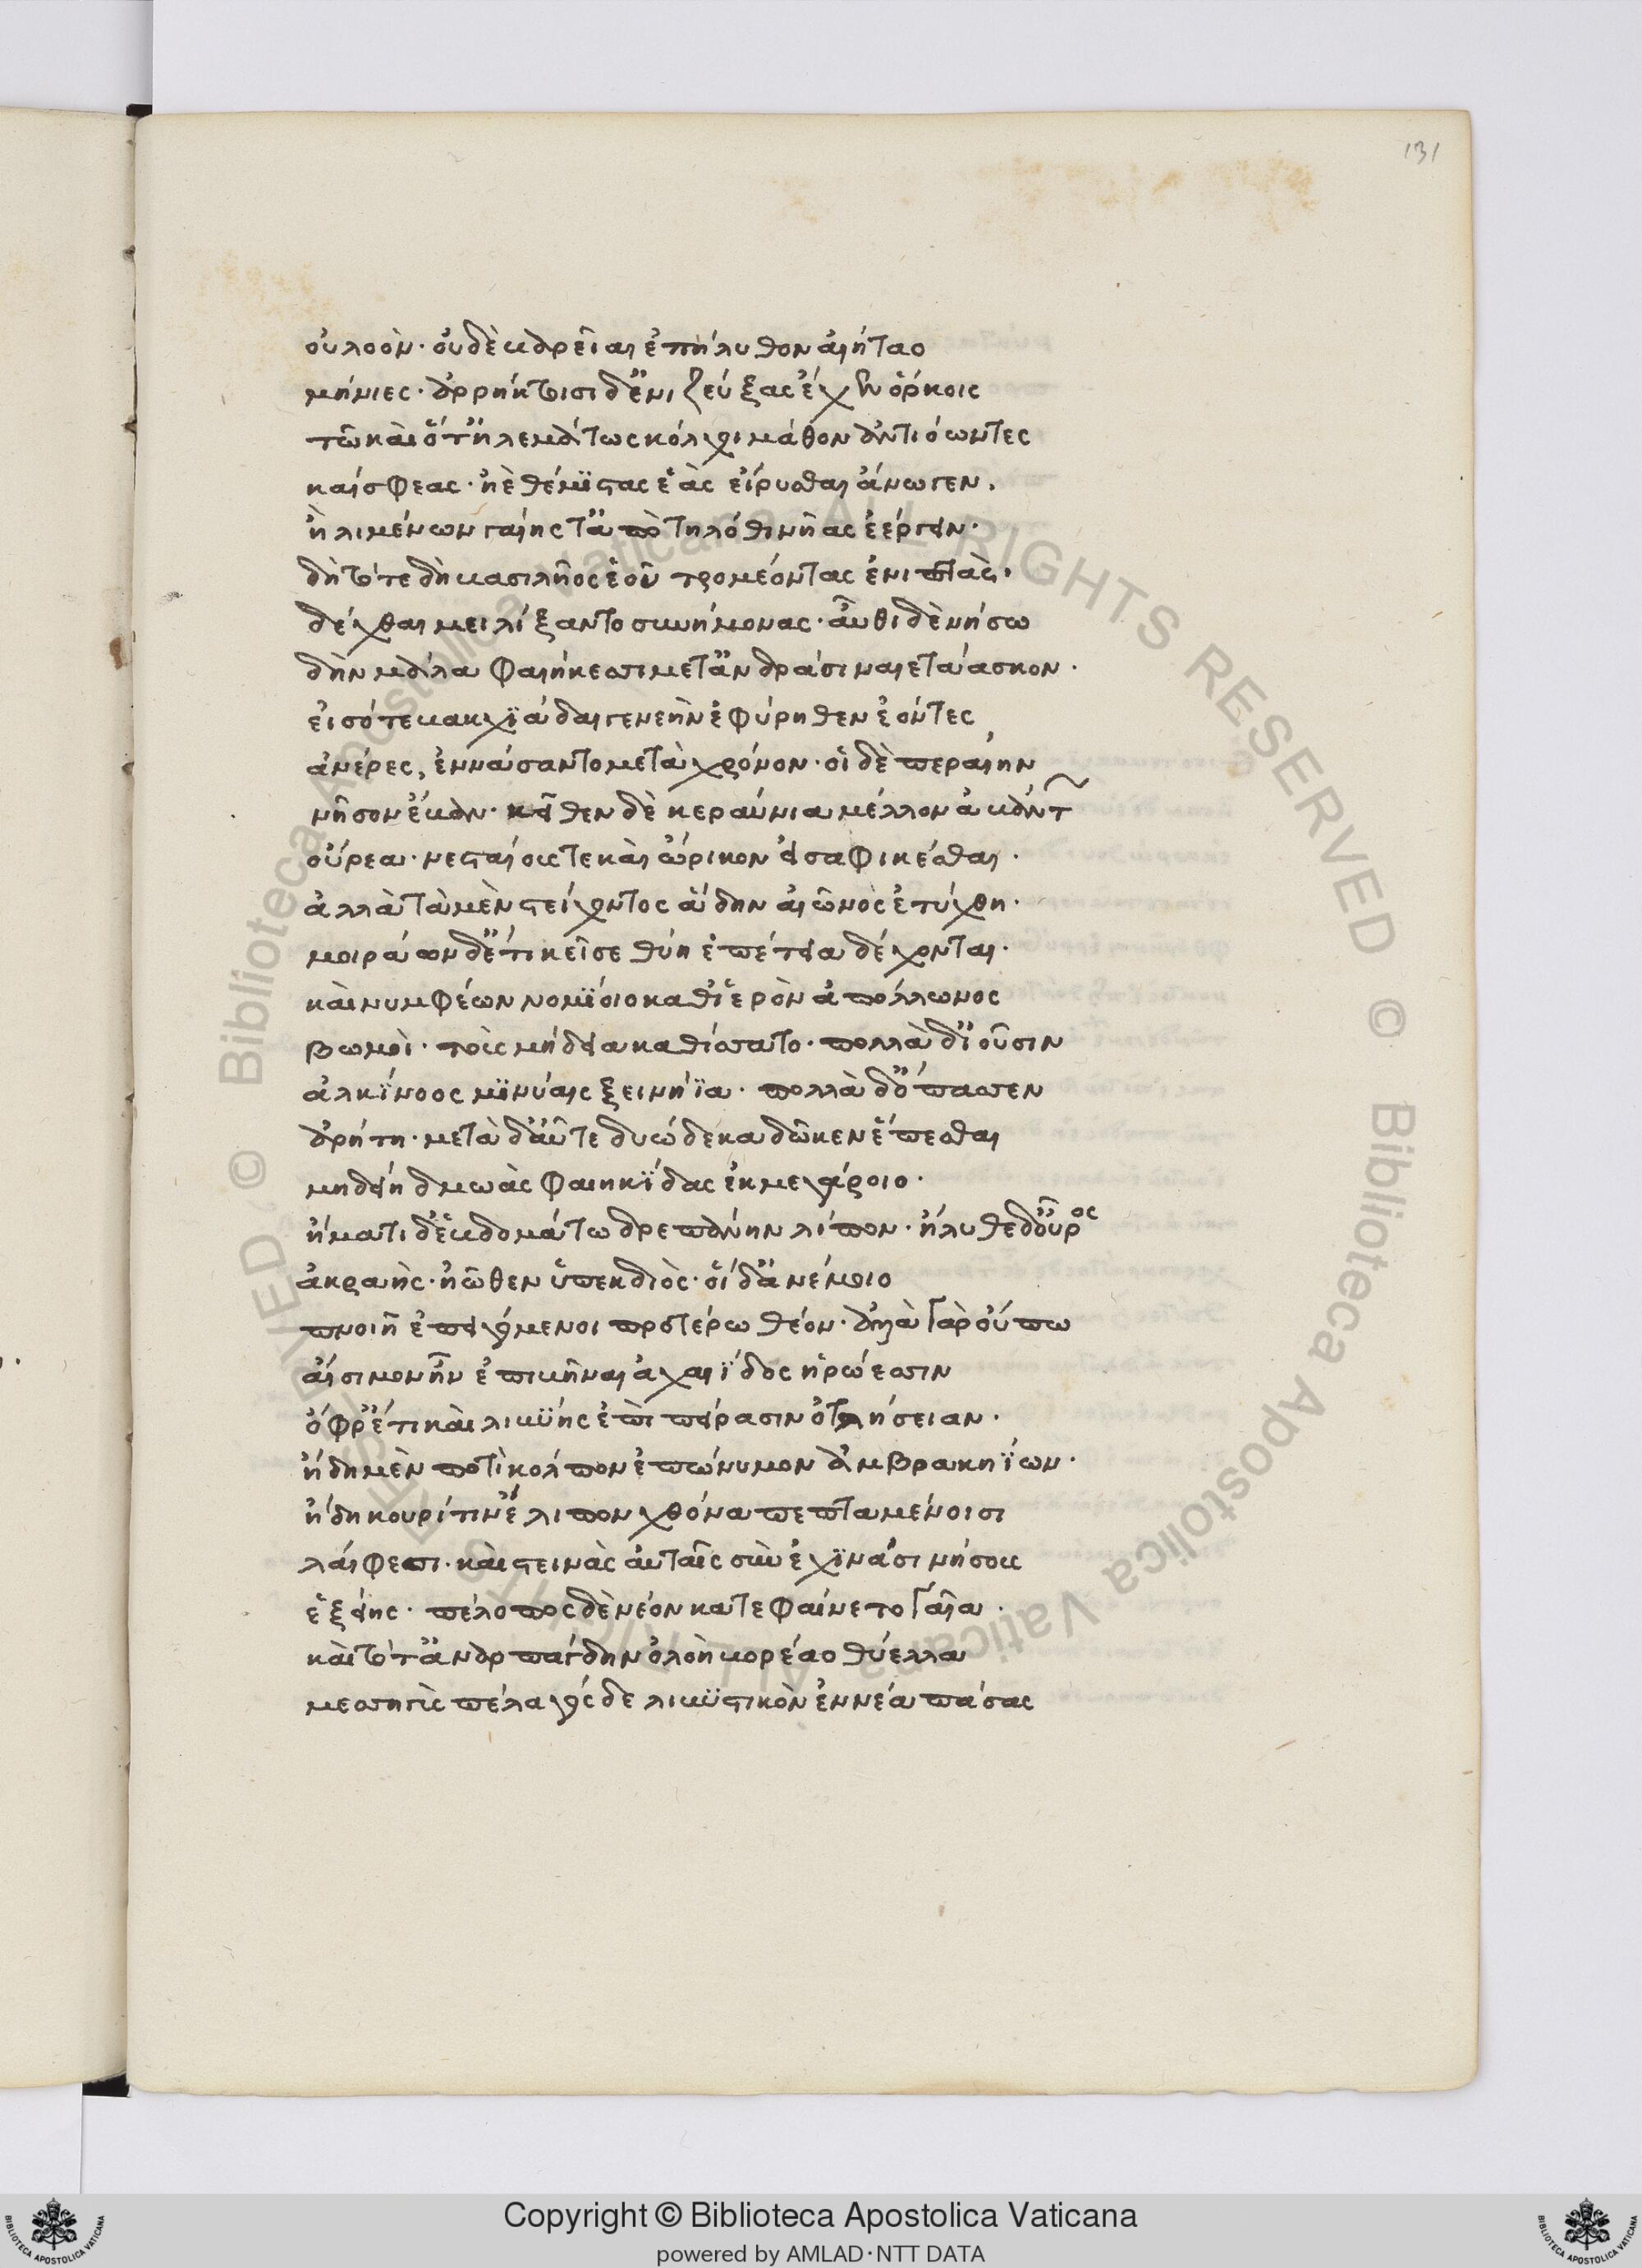 οὐλοὸν· οὐδὲ βαρεῖαι ἐπήλυθον αἰήταο
μήνιες· ἀρρήκτοισι δ᾽ ἐνιζεύξας ἔχεν ὅρκοις
τῶ καὶ ὅτ᾽ ἠλεμάτως κόλχοι μάθον ἀντιόωντες
καί σφεας· ἠὲ θέμϊστας ἑὰς εἴρυσθαι ἄνωγεν.
ἢ λιμένων γαίης τ᾽ ἀπὸ τηλόθι νῆας ἐέργειν·
δὴ τότε δὴ βασιλῆος ἑοῦ τρομέοντας ἐνιπτὰς·
δέχθαι μειλίξαντο συνήμονας· αὖθι δὲ νήσω
δὴν μάλα φαιήκεσσι μετ᾽ ἀνδράσι ναιετάασκον.
εἰσότε βακχϊάδαι γενεὴν ἐφύρηθεν ἐόντες
ἀνέρες, ἐννάσαντο μετὰ χρόνον· οἱ δὲ περαίην
νῆσον ἔβαν· κεῖθεν δὲ κεραύνια μέλλον ἀβάντ
οὔρεα· νεσταίους τε καὶ ὤρικον εἰσαφικέσθαι.
ἀλλὰ τὰ μὲν στείχοντος ἄδην αἰῶνος ἐτύχθη·
μοιράων δ᾽ ἔτι κεῖσε θύη ἐπέτεια δέχονται·
καὶ νυμφέων νομΐοιο καθ᾽ ἱερὸν ἀπόλλωνος
βωμοὶ· τοὺς μήδεια καθίσσατο· πολλὰ δ᾽ ἰοῦσιν
ἀλκΐνοος μϊνύαις ξεινήϊα· πολλὰ δ᾽ ὄπασσεν
ἀρήτη· μετὰ δ᾽ αὖτε δυώδεκα δῶκεν ἕπεσθαι
μηδείη δμωὰς φαιηκΐδας ἐκ μεγάροιο·
ἤματι δ᾽ ἑβδομάτω δρεπάνην λίπον· ἤλυθε δ᾽ οὖρος
ἀκραὴς· ἠῶθεν ὑπεκδιὸς· οἱ δ᾽ ἀνέμοιο
πνοιῆ ἐπειγόμενοι προτέρω θέον· ἀλλὰ γὰρ οὔπω
αἴσιμον ἦν ἐπιβῆναι ἀχαιΐδος ἡρώεσσιν
ὄφρ᾽ ἔτι καὶ λιβύης ἐπὶ πείρασιν ὀτλήσειαν·
ἤδη μὲν ποτὶ κολπον ἐπώνυμον ἀμβρακηΐων·
ἤδη κουρίτιν ἔλιπον χθόνα πεπταμένοισι
λαίφεσι· καὶ στεινὰς αὐταῖς σὺν ἐχϊνάσι νήσους
ἑξείης· πέλοπος δὲ νέον κατεφαίνετο γαῖα·
καὶ τότ᾽ ἀναρπάγδην ὀλοὴ βορέαο θύελλα
μεσσηγὺς πέλαγόσδε λιβϋστικὸν ἐννέα πάσας
131
Copyright © Biblioteca Apostolica Vaticana
powered by AMLAD·NTT DATA